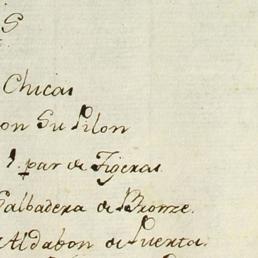 S
Chicas
on Su Pilon
1. par de Tigeras.
Salbadera de Bronze.
Aldabon de Puerta.